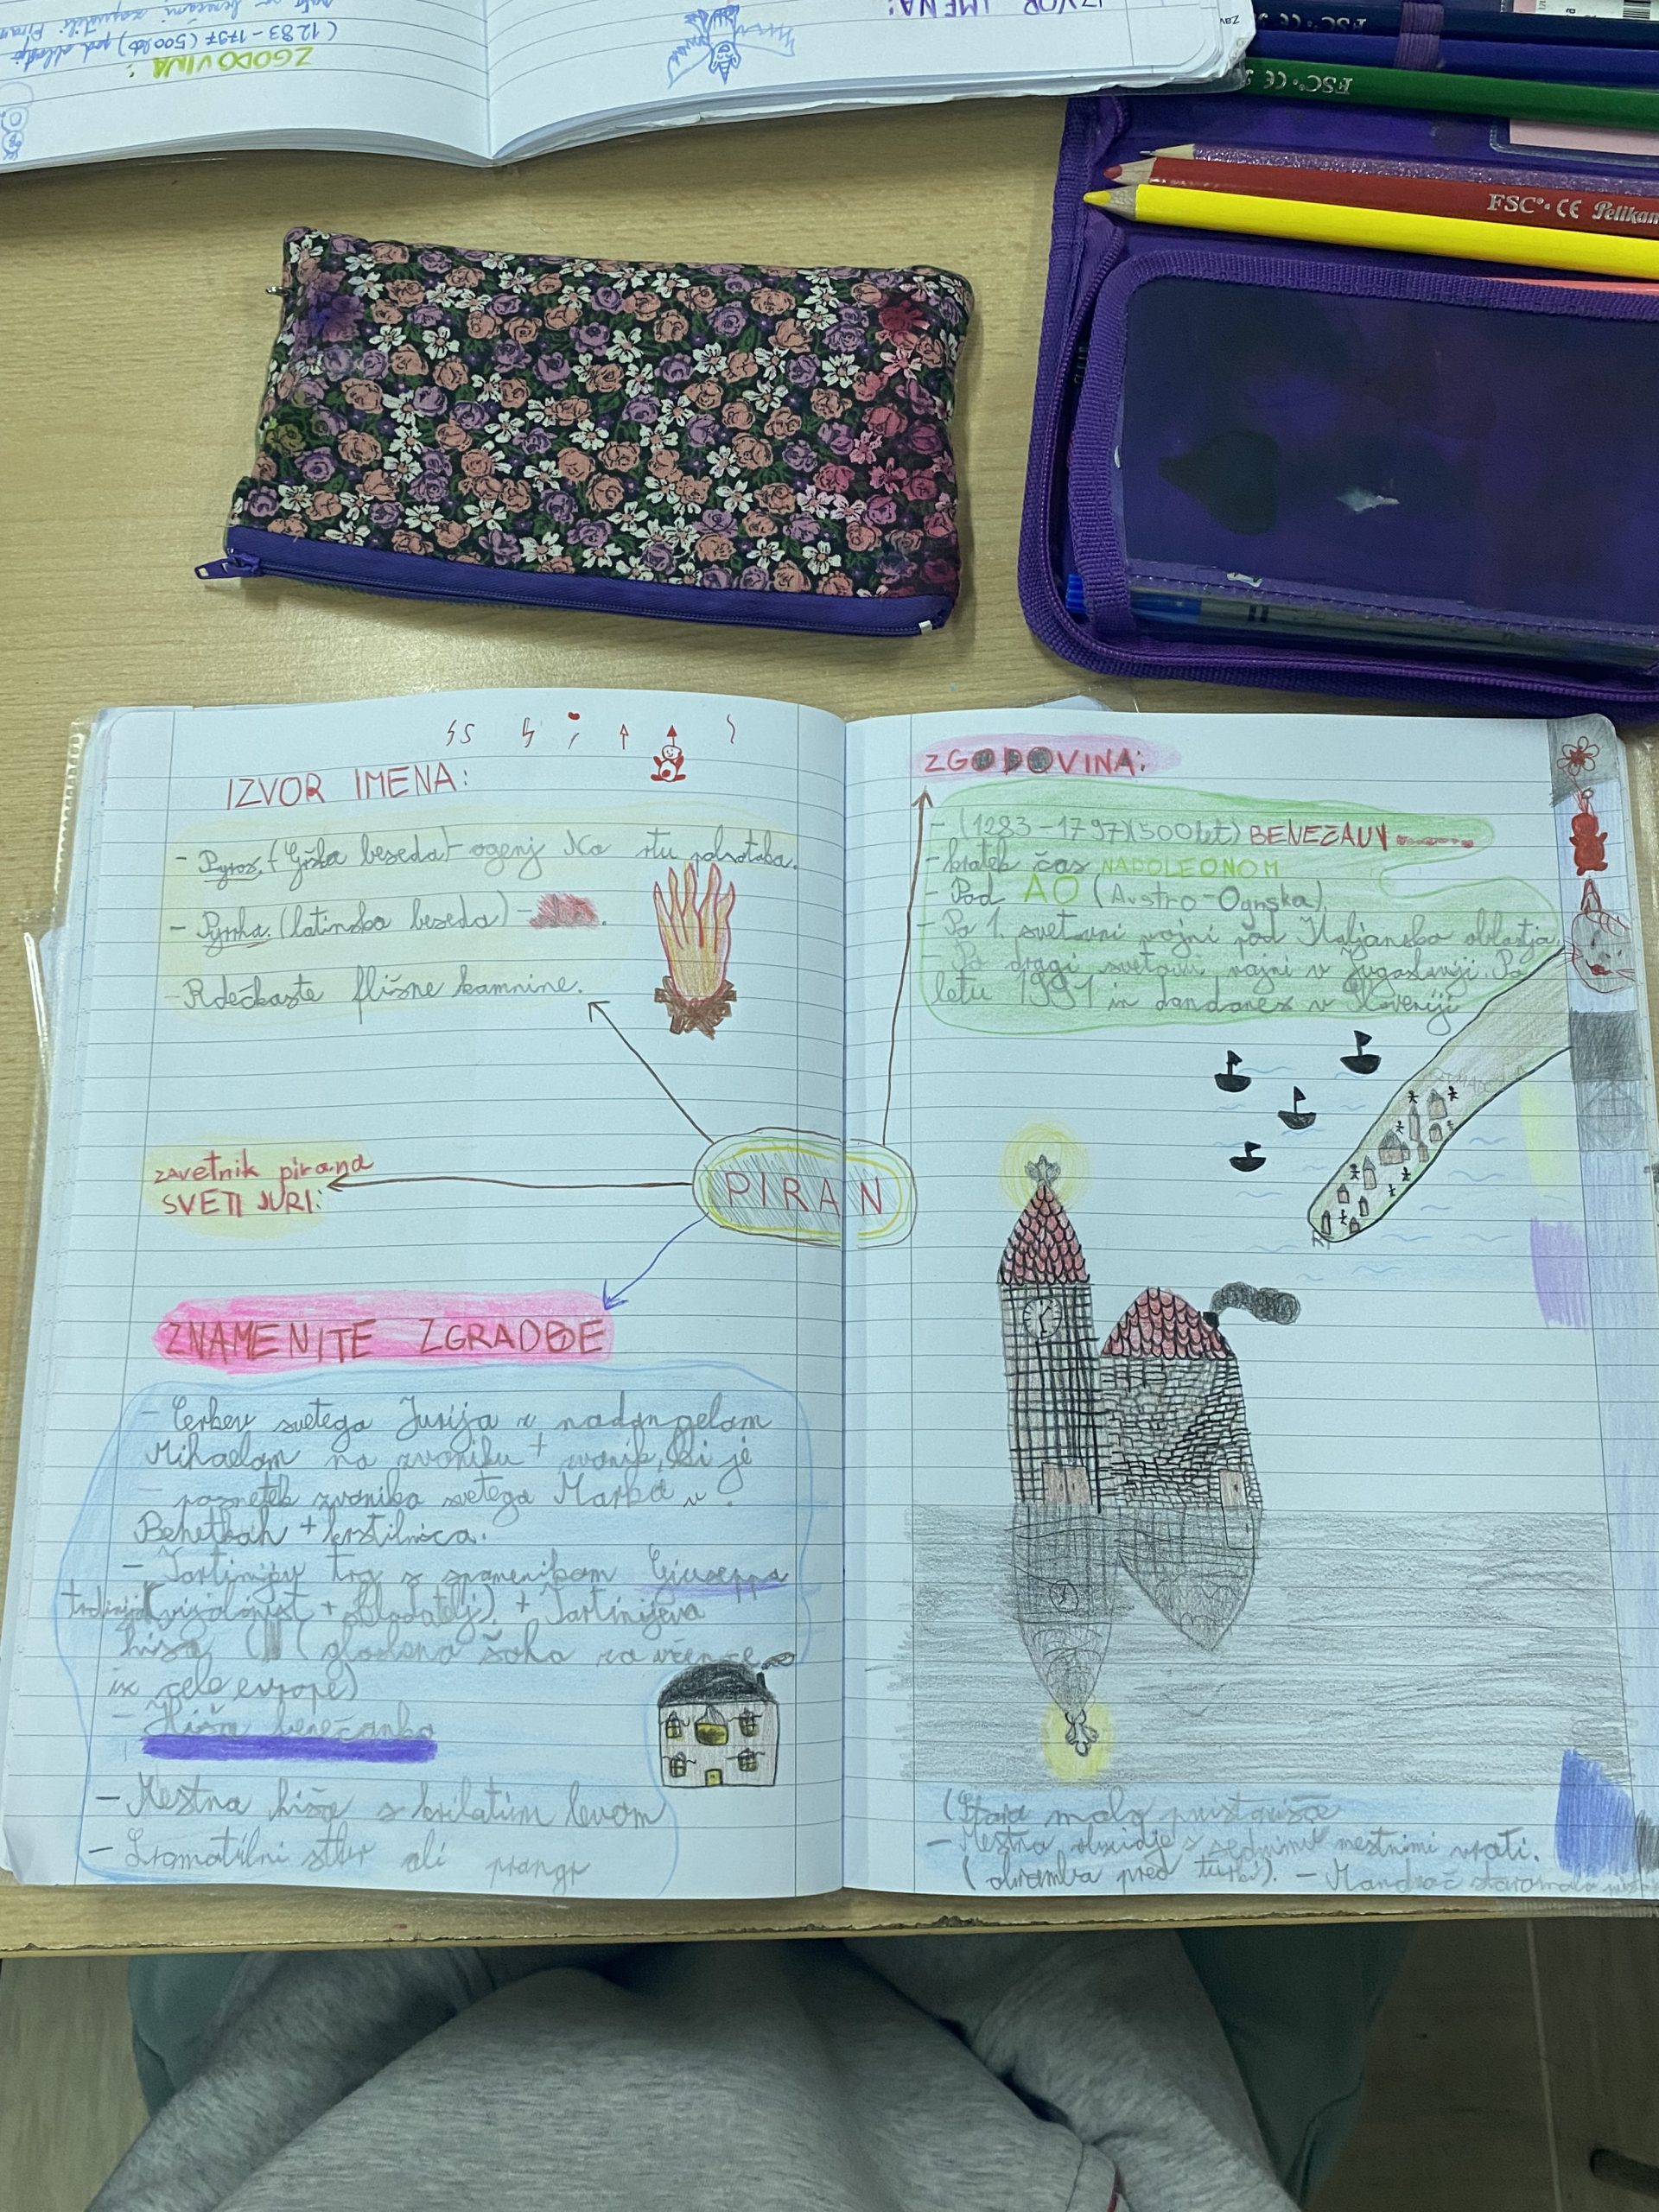 ZGODOVINA:
(1283-1797 (500let) pod oblastjo
IZVOR IMENA:
FSC CE
FSC CE
FSC® CE Pelikan
IZVOR IMENA:
- Pyros. (Grška beseda)- ogenj Na rtu polotoka.
- Pyrrha. (latinska beseda) -
- Rdečkaste flišne kamnine.
zavetnik pirana
SVETI JURI:
PIRAN
ZNAMENITE ZGRADBE
- Cerkev svetega Jurija z nadangelom
Mihaelom na zvoniku + zvonik, ki je
- posnetek zvonika svetega Marka v
Benetkah + krstilnica.
- Tartinijev trg s spomenikom Giuseppa
(violinist + skladatelj) + Tartinijeva
hiša (glasbena šola za učence
iz cele evrope)
- Hiša benečanka
- Mestna hiša s krilatim levom
- Sramotilni steber ali pranger
ZGODOVINA:
- (1283-1797)(500let) BENEČANI
- kratek čas NAPOLEONOM
- Pod AO (Avstro-Ogrska)
- Po 1. svetovni vojni pod Italjansko oblastjo
- Po drugi svetovni vojni v Jugoslaviji. Po
letu 1991 in dandanes v Sloveniji
(Staro malo pristanišče
- Mestno obzidje s sedmimi mestnimi vrati.
(obramba pred turki). - Mandrač staro malo